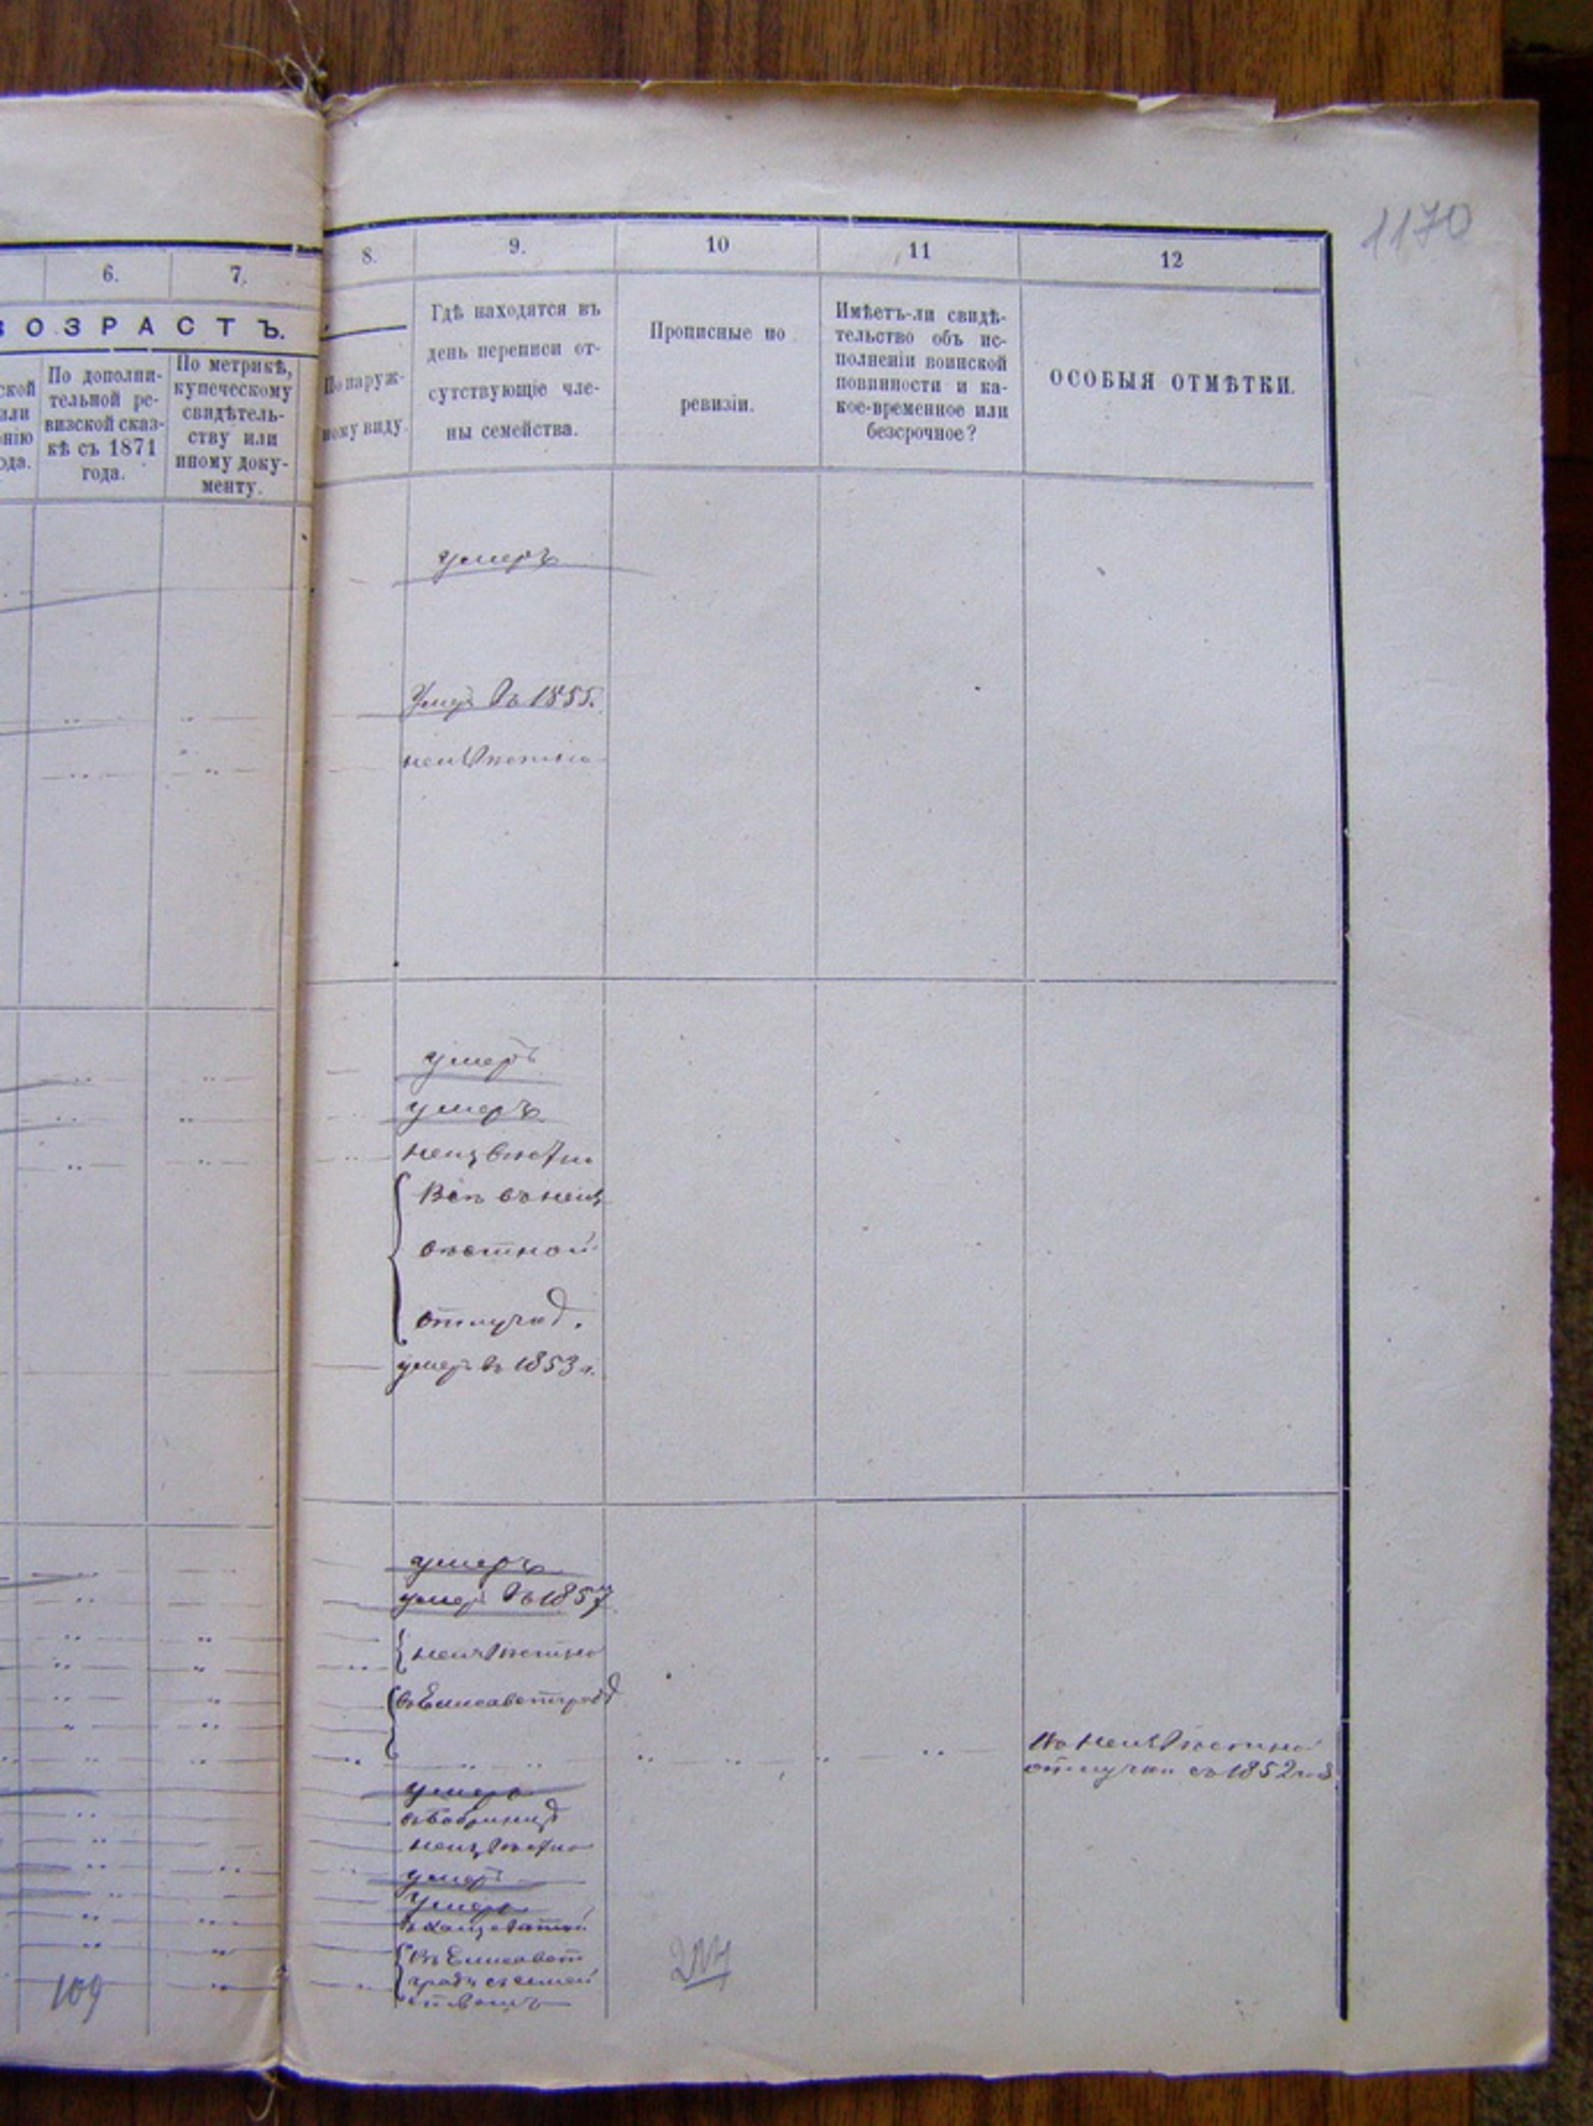 1170
6.
7.
8.
9.
10
11
12
ВОЗРАСТЪ.
ской
или
нію
ода.
По дополни-
тельной ре-
визской сказ-
кѣ съ 1871
года.
По метрикѣ,
купеческому
свидѣтель-
ству или
иному доку-
менту.
По наруж-
ному виду.
Гдѣ находятся въ
день переписи от-
сутствующіе чле-
ны семейства.
Прописные по
ревизіи.
Имѣетъ-ли свидѣ-
тельство объ ис-
полненіи воинской
повинности и ка-
кое-временное или
безсрочное?
ОСОБЫЯ ОТМѢТКИ.
умеръ
Умеръ въ 1855.
неизвѣстно
умеръ
умеръ
неизвѣстно
Всѣ въ неиз
вѣстной
отлучкѣ.
умеръ въ 1853 г.
умеръ
умеръ въ 1857
неизвѣстно
въ Елисаветградѣ
въ неизвѣстной
отлучкѣ съ 1852 год
умеръ
въ Бобринцѣ
неизвѣстно
умеръ
Умеръ
въ Хащеватой
въ Елисавет
градѣ съ семей
ствомъ
109